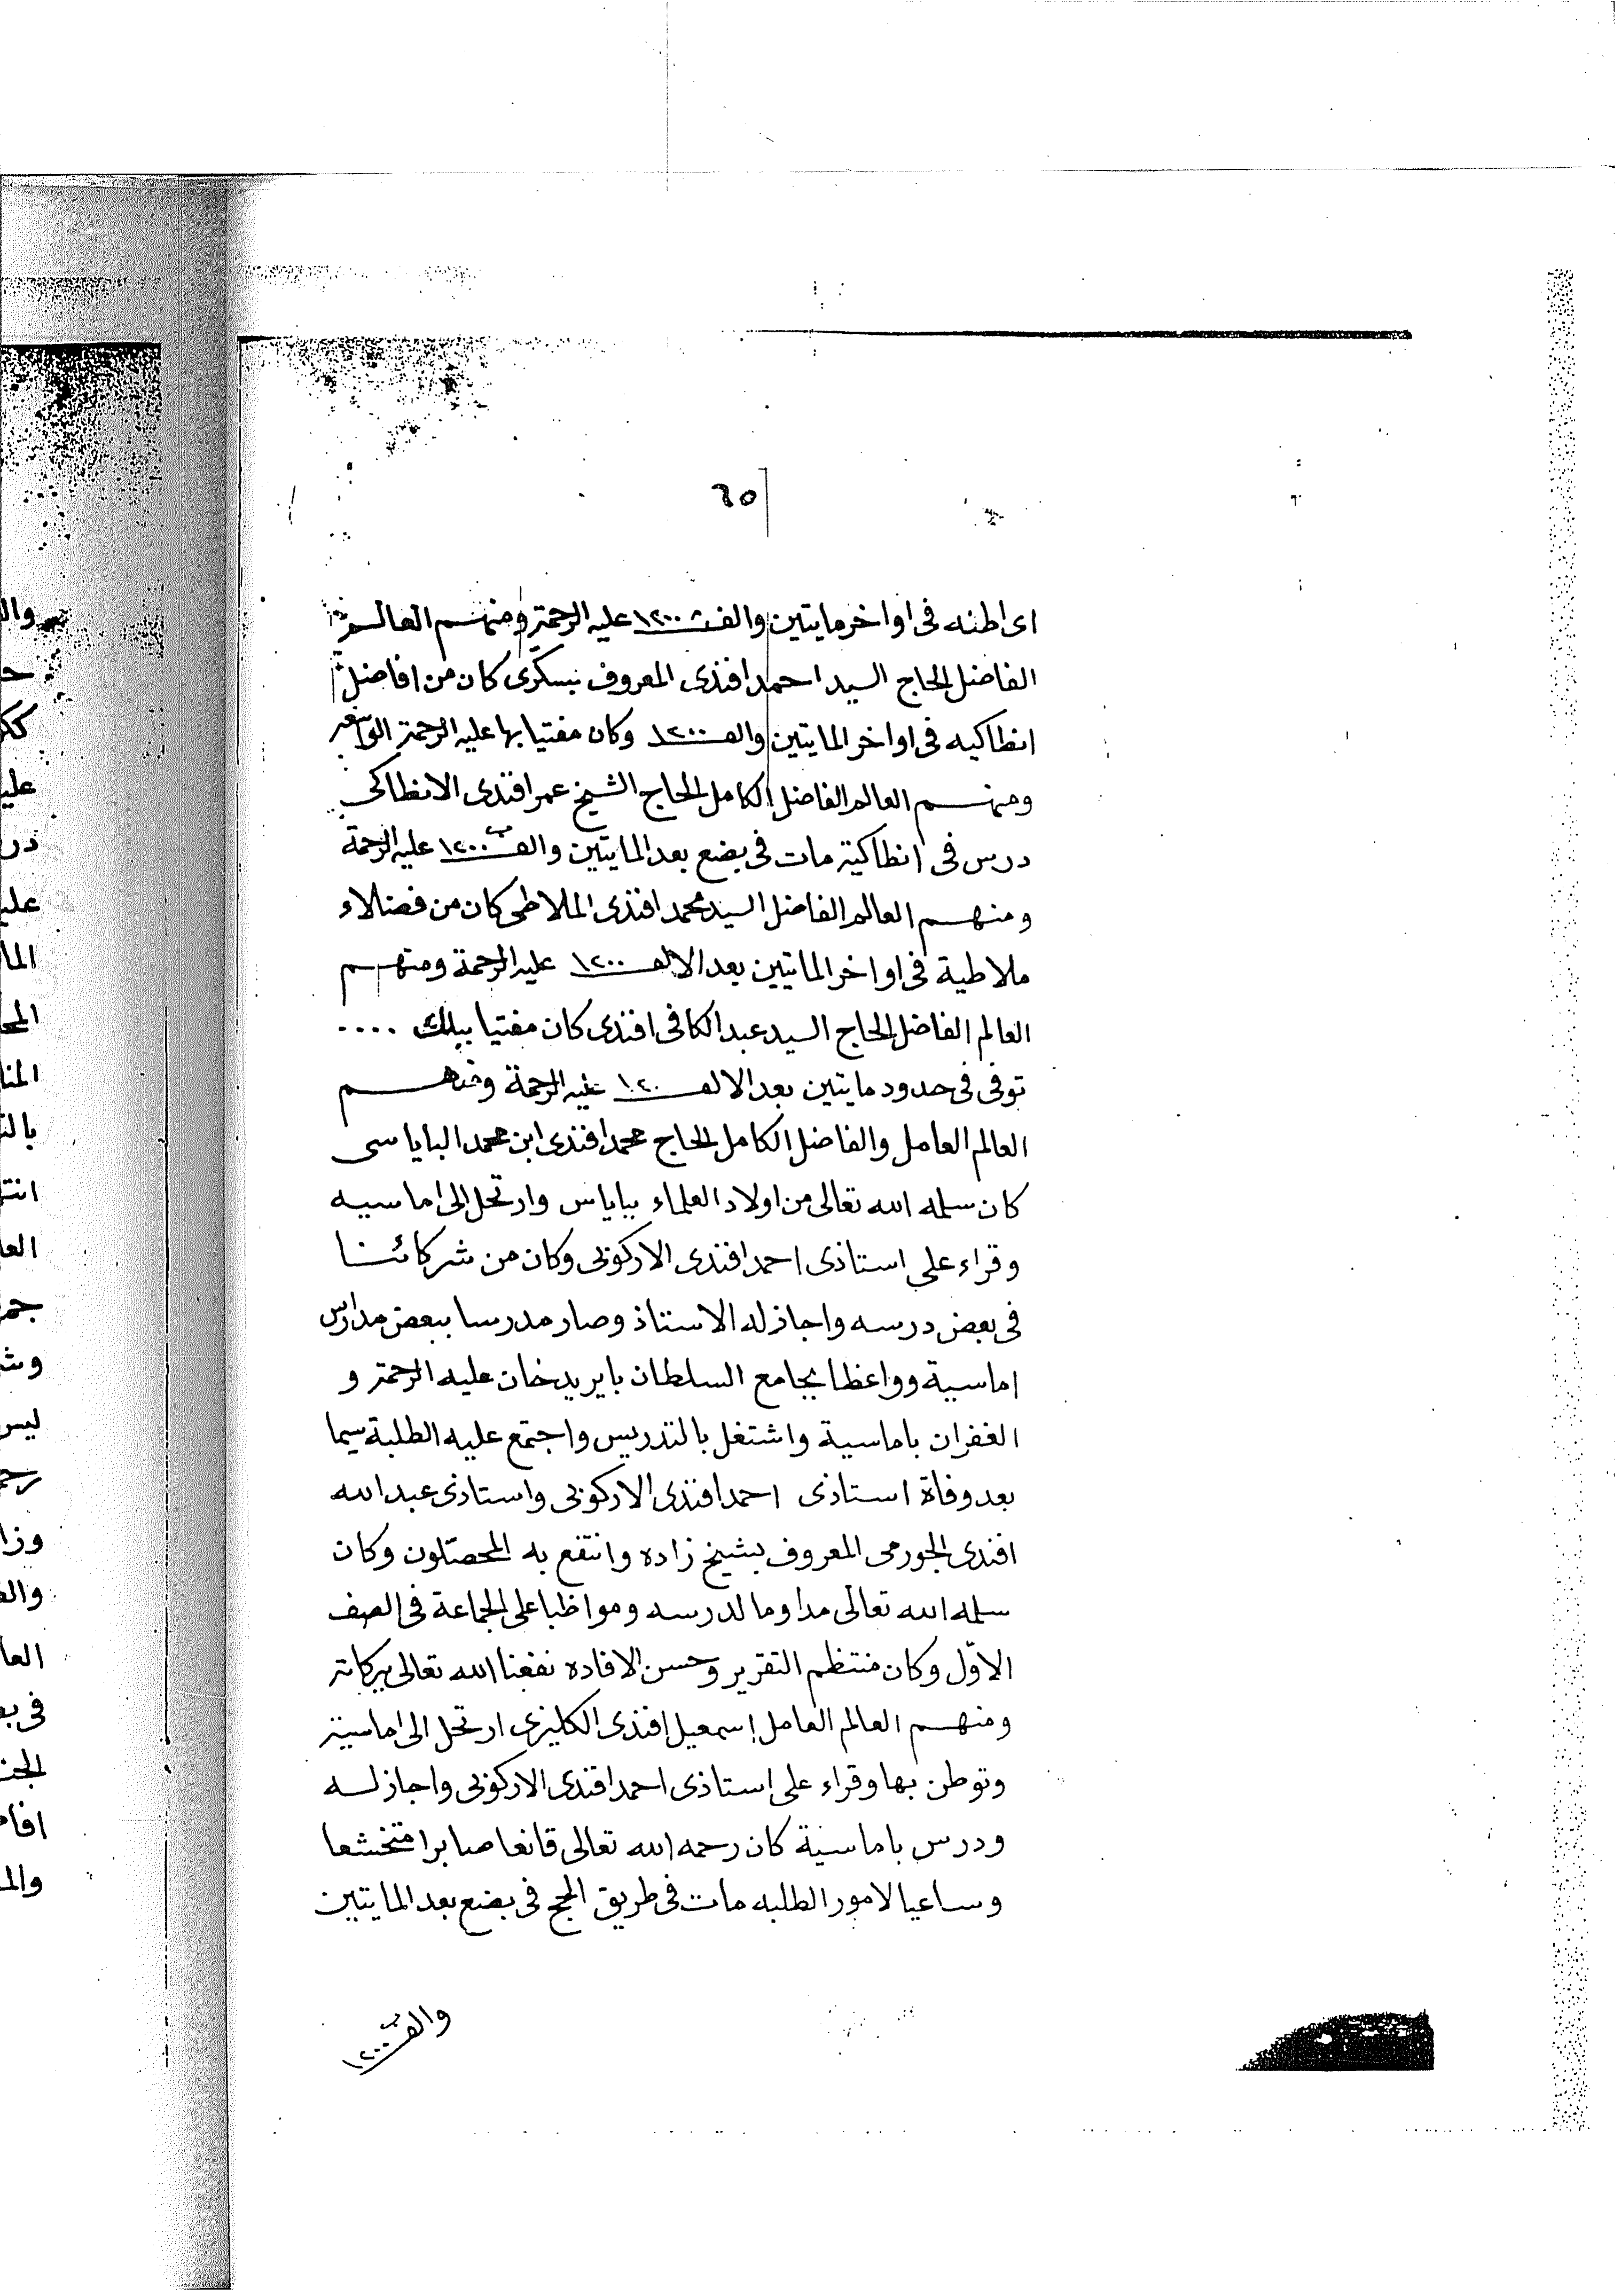 ٦٥
اى اطنه فى اواخر مايتين والف ١٢٠٠ عليه الرحمة ومنهم العالم
الفاضل الحاج السيد احمد افندى المعروف ببسكرى كان من افاضل
انطاكيه فى اواخر المايتين والف ١٢٠٠ وكان مفتيا بها عليه الرحمة
ومنهم العالم الفاضل الكامل الحاج الشيخ عمر افندى الانطاكى
درس فى انطاكية مات فى بضع بعد المايتين والف ١٢٠٠ عليه الرحمة
ومنهم العالم الفاضل السيد محمد افندى الملاطى كان من فضلاء
ملاطية فى اواخر الماتيين بعد الالف ١٢٠٠ عليه الرحمة ومنهم
العالم الفاضل الحاج السيد عبد الكافى افندى كان مفتيا ....
توفى فى حدود مايتين بعد الالف ١٢٠٠ عليه الرحمة ومنهم
العالم العامل والفاضل الكامل الحاج محمد افندى ابن محمد الباياسى
كان سلمه الله تعالى من اولاد العلماء بباياس وارتحل الى اماسيه
وقراء على استاذى احمد افندى الاركوبى وكان من شركائنا
فى بعض درسه واجاز له الاستاذ وصار مدرسا ببعض مدارس
اماسية وواعظا بجامع السلطان بايريد خان عليه الرحمة و
الغفران باماسية واشتغل بالتدريس واجتمع عليه الطلبة سيما
بعد وفاة استاذى احمد افندى الاركوبى واستاذى عبد الله
افندى الجورمى المعروف بشيخ زاده وانتفع به المحصلون وكان
سلمه الله تعالى مداوما لدرسه ومواظبا على الجماعة فى الصف
الاوّل وكان منتظم التقرير وحسن الافاده نفعنا الله تعالى ببركاته
ومنهم العالم العامل إسمعيل افندى الكليزى ارتحل الى اماسية
وتوطن بها وقراء على استاذى احمد افندى الاركوبى واجاز له
ودرس باماسية كان رحمه الله تعالى قانعا صابرا متخشعا
وساعيا لامور الطلبه مات فى طريق الحج فى بضع بعد المايتين
والف ١٢٠٠